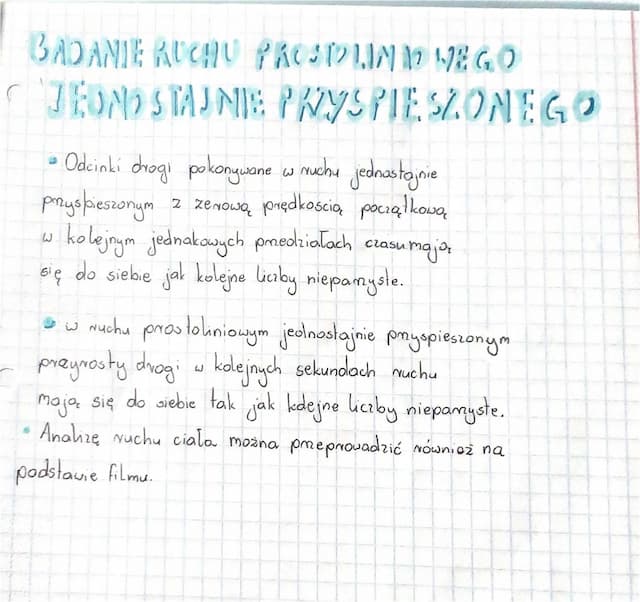 BADANIE RUCHU PROSTOLINIOWEGO
JEDNOSTAJNIE PRZYSPIESZONEGO
• Odcinki drogi pokonywane w ruchu jednostajnie
przyspieszonym z zerową prędkością początkową
w kolejnym jednakowych przedziałach czasu mają
się do siebie jak kolejne liczby nieparzyste.
• w ruchu prostoliniowym jednostajnie przyspieszonym
przyrosty drogi w kolejnych sekundach ruchu
mają się do siebie tak jak kolejne liczby nieparzyste.
• Analizę ruchu ciała można przeprowadzić również na
podstawie filmu.